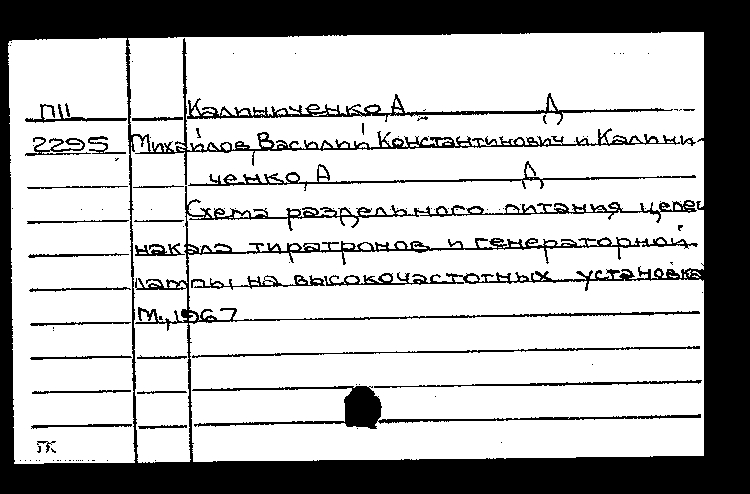 П11 Калиниченко, А. Д
2295 Михайлов, Василий Константинович и Калини-
ченко, А Д
Схема раздельного питания цепей
накала тиратронов и генераторной
лампы на высокочастотных установка
М., 1967
ПК